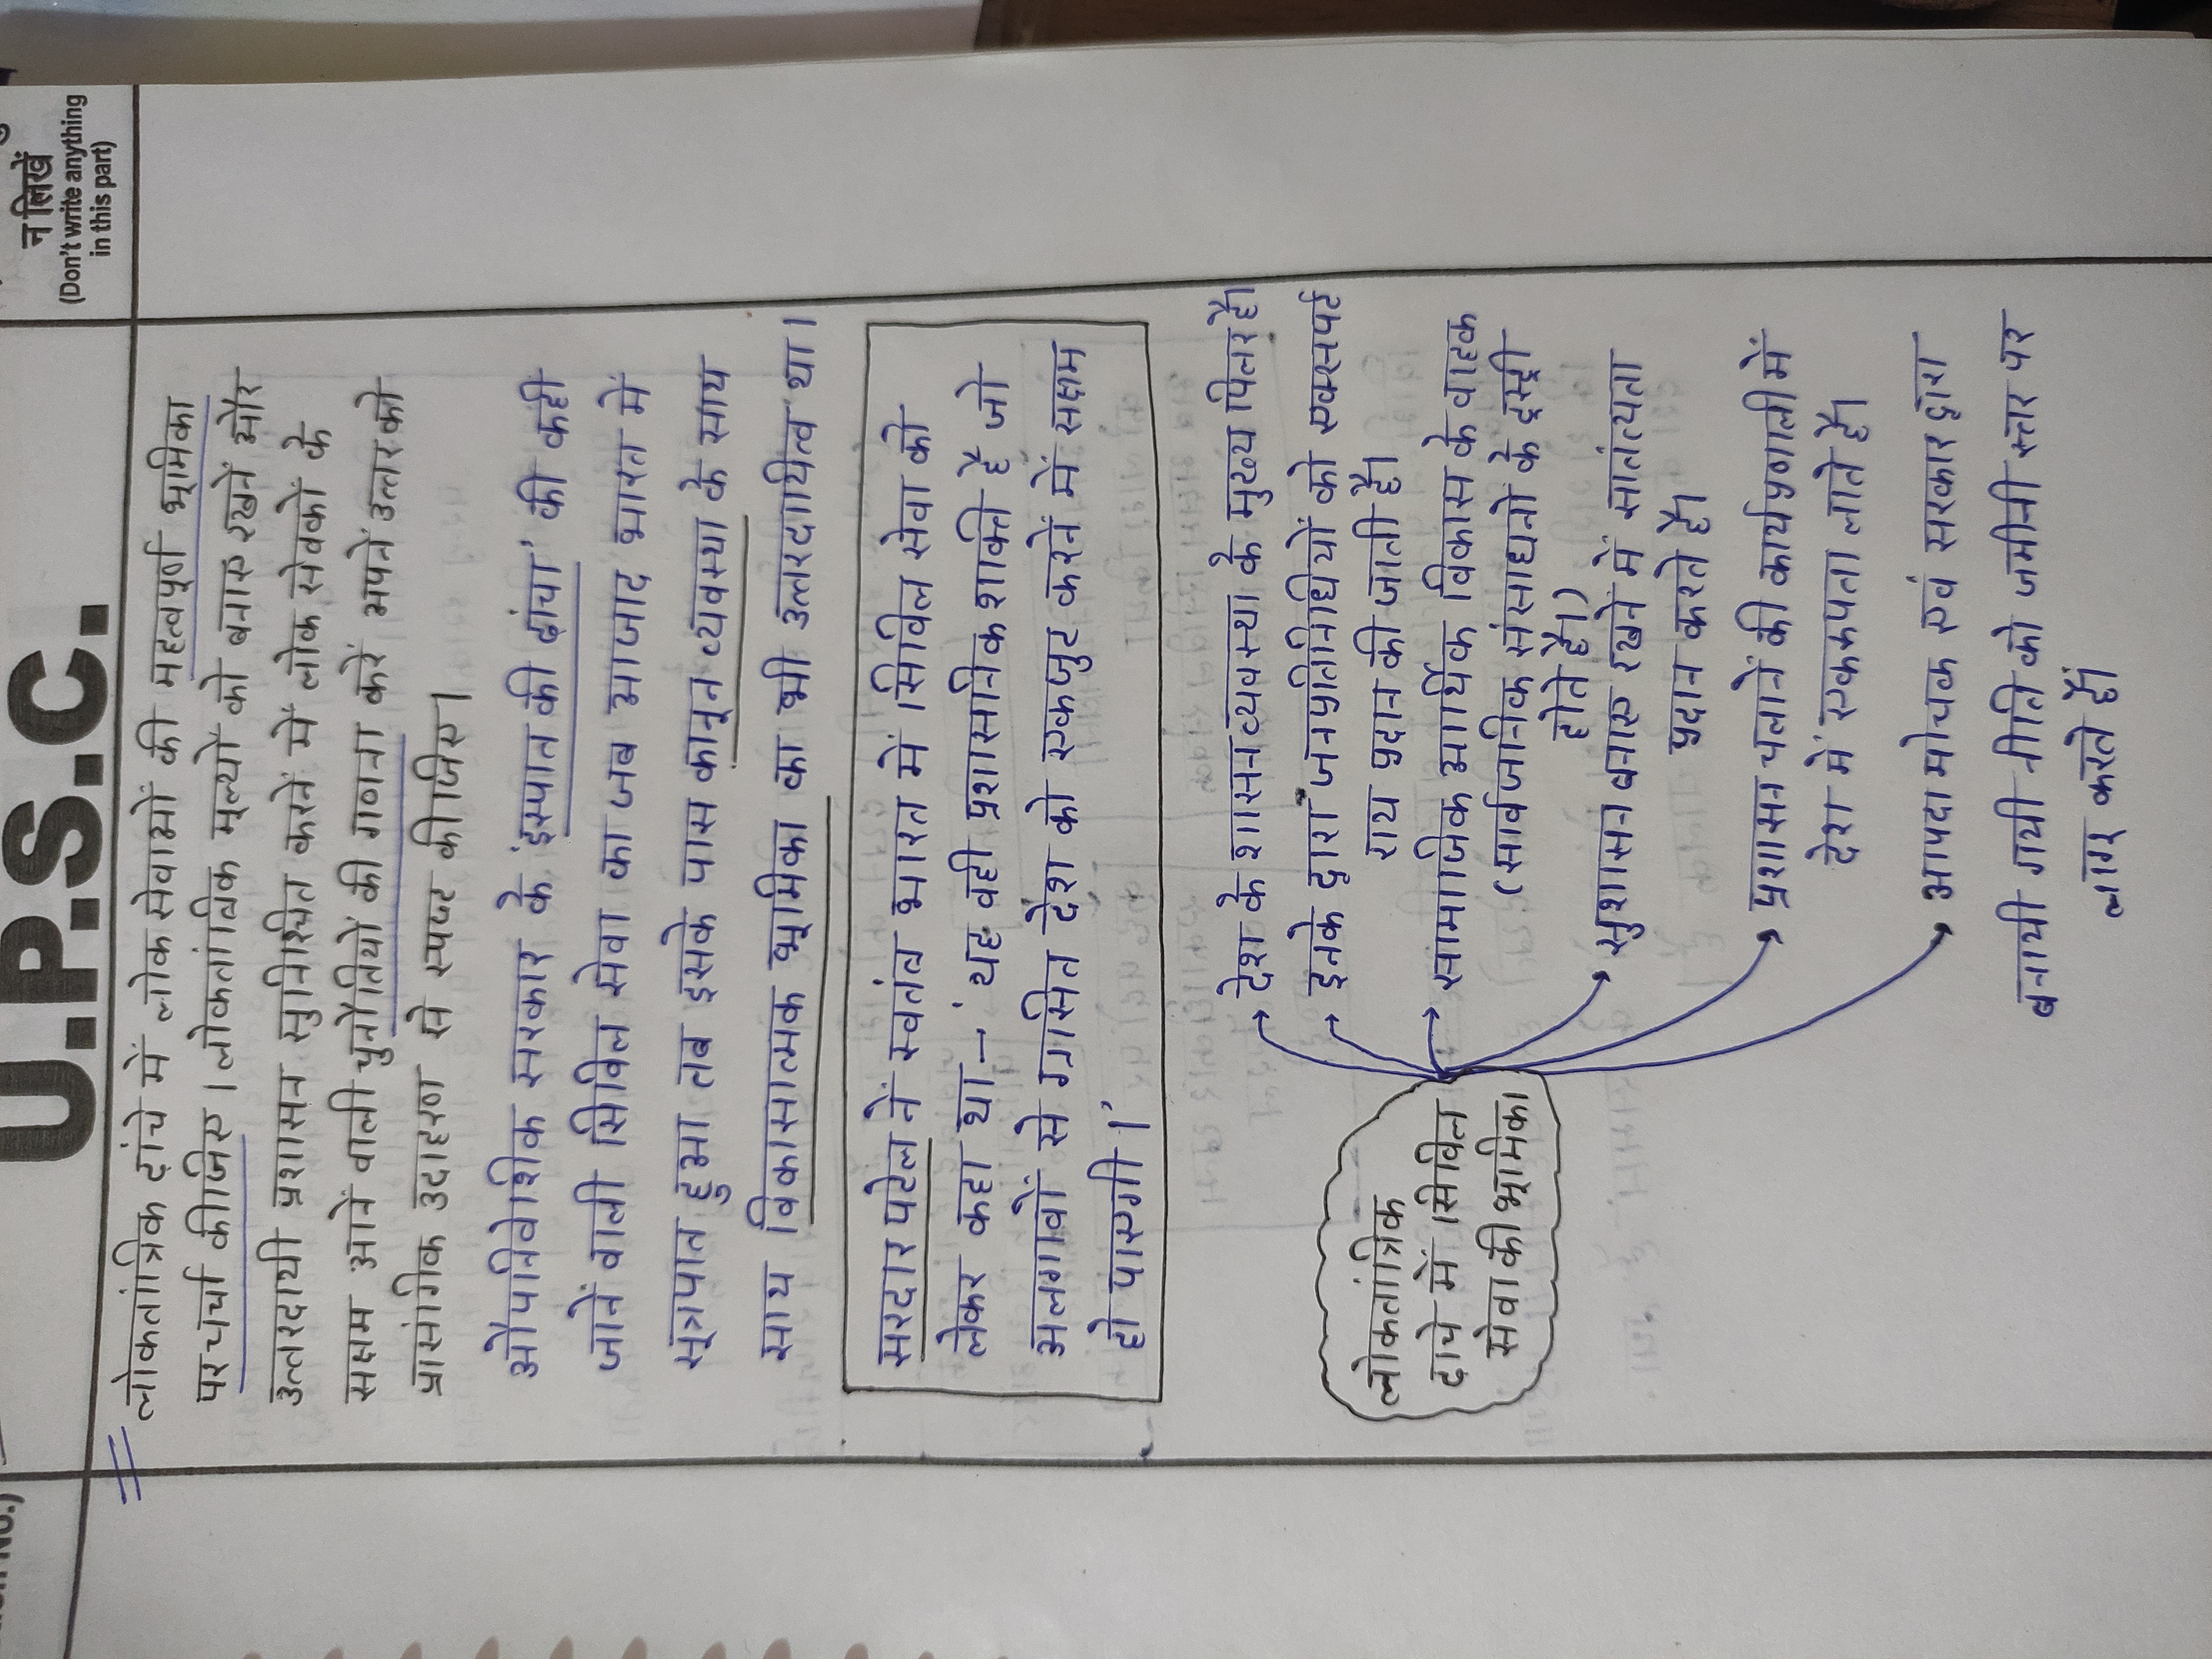 न लिखें
(Don't write anything
in this part)
U.P.S.C.
लोकतांत्रिक ढांचे में लोक सेवाओं की महत्वपूर्ण भूमिका
पर चर्चा कीजिए । लोकतांत्रिक मूल्यों को बनाए रखनें और
उत्तरदायी प्रशासन सुनिश्चित करनें में लोक सेवकों के
सक्षम आनें वाली चुनौतियों की गणना करें अपनें उत्तर को
प्रासंगिक उदाहरण से स्पष्ट कीजिए ।
औपनिवेशिक सरकार के 'इस्पात की ढांचा' की कही
जानें वाली सिविल सेवा का जब आजाद भारत में
सूत्रपात हुआ तब इसके पास कानून व्यवस्था के साथ
साथ विकासात्मक भूमिका का भी उत्तरदायित्व था ।
सरदार पटेल नें स्वतंत्र भारत में सिविल सेवा को
लेकर कहा था → 'यह वही प्रशासनिक शक्ति है जो
अलगावों से ग्रसित देश को एकजुट करनें में सक्षम
हो पाएगी ।'
लोकतांत्रिक
ढाचे में सिविल
सेवा की भूमिका
→ देश के शासन व्यवस्था के मुख्य पिलर है।
→ इनके द्वारा जनप्रतिनिधियों को एक्सपर्ट
राय प्रदान की जाती है।
→ सामाजिक आर्थिक विकास के वाहक
(सार्वजानिक संसाधनों के ट्रस्टी
होते है।)
→ सुशासन बनाए रखनें में सातंत्यता
प्रदान करते है।
→ प्रशासन चलानें की कार्यप्रणाली में
देश में एकरूपता लाते है।
→ आपदा मोचक एवं सरकार द्वारा
बनायी गयी नीति को जमीनी स्तर पर
लागू करते हैं।